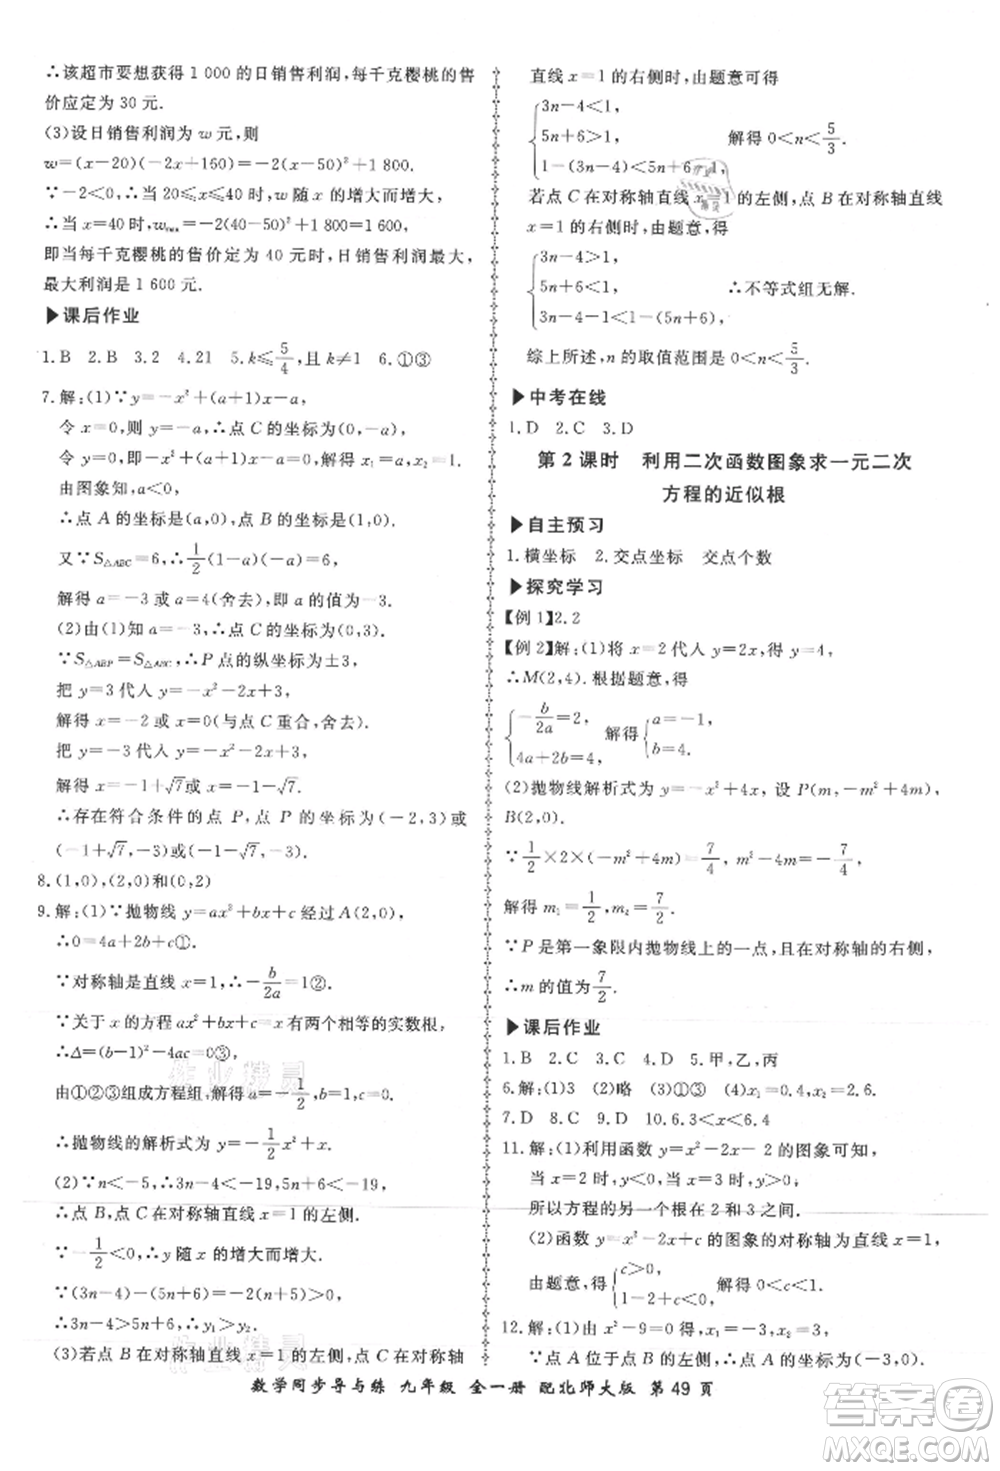 ∴该超市要想获得 1 000 的日销售利润,每千克樱桃的售
价应定为 30 元.
(3)设日销售利润为 w 元,则
w=(x-20)(-2x+160)=-2(x-50)²+1 800.
∵-2<0,∴当 20≤x≤40 时,w 随 x 的增大而增大,
∴当 x=40 时,wmax=-2(40-50)²+1 800=1 600.
即当每千克樱桃的售价定为 40 元时,日销售利润最大,
最大利润是 1 600 元.
▶课后作业
1.B 2.B 3.2 4.21 5.k≤5/4,且 k≠1 6.①③
7.解:(1)∵y=-x²+(a+1)x-a,
令 x=0,则 y=-a,∴点 C 的坐标为(0,-a),
令 y=0,即-x²+(a+1)x-a=0,解得 x₁=a,x₂=1.
由图象知,a<0.
∴点 A 的坐标是(a,0),点 B 的坐标是(1,0).
又∵S△ABC=6,∴1/2(1-a)(-a)=6.
解得 a=-3 或 a=4(舍去),即 a 的值为-3.
(2)由(1)知 a=-3,则 C(0,3).
∵S△ABP=S△ABC,∴P 点的纵坐标为±3,
把 y=3 代入 y=-x²-2x+3,
解得 x=-2 或 x=0(与点 C 重合,舍去).
把 y=-3 代入 y=-x²-2x+3,
解得 x=-1+√7或 x=-1-√7.
∴存在符合条件的点 P,点 P 的坐标为(-2,3)或
(-1+√7,-3)或(-1-√7,-3).
8.(1,0),(2,0)和(0,2)
9.解:(1)∵抛物线 y=ax²+bx+c 经过 A(2,0),
∴0=4a+2b+c①.
∵对称轴是直线 x=1,∴-b/2a=1②.
∵关于 x 的方程 ax²+bx+c=x 有两个相等的实数根,
∴Δ=(b-1)²-4ac=0③,
由①②③组成方程组,解得 a=-1/2,b=1,c=0,
∴抛物线的解析式为 y=-1/2x²+x.
(2)∵n<-5,∴3n-4<-19,5n+6<-19,
∴点 B,点 C 在对称轴直线 x=1 的左侧.
∵-1/2<0,∴y 随 x 的增大而增大.
∵(3n-4)-(5n+6)=-2n-10>0,
∴3n-4>5n+6,∴y₁>y₂.
(3)若点 B 在对称轴直线 x=1 的左侧,点 C 在对称轴
直线 x=1 的右侧时,由题意可得
3n-4<1,
5n+6>1, 解得 0<n<5/3.
1-(3n-4)<5n+6-1,
若点 C 在对称轴直线 x=1 的左侧,点 B 在对称轴直线
x=1 的右侧时,由题意可得
3n-4>1,
5n+6<1, ∴不等式组无解,
3n-4-1<1-(5n+6),
综上所述,n 的取值范围是 0<n<5/3.
▶中考在线
1.D 2.C 3.D
第 2 课时 利用二次函数图象求一元二次
方程的近似根
▶自主预习
1.横坐标 2.交点坐标 交点个数
▶探究学习
【例 1】2.2
【例 2】解:(1)将 x=2 代入 y=2x,得 y=4,
∴M(2,4).根据题意,得
-b/2a=2,
4a+2b=4, 解得 a=-1,
b=4.
(2)抛物线解析式为 y=-x²+4x,设 P(m,-m²+4m),
B(2,0).
∵1/2×2×(-m²+4m)=7/4,∴-m²+4m=7/4,
解得 m₁=1/2,m₂=7/2.
∵P 是第一象限内抛物线上的一点,且在对称轴的右侧,
∴m 的值为7/2.
▶课后作业
1.B 2.C 3.C 4.D 5.甲,乙,丙
6.解:(1)3 (2)略 (3)①③ (4)x=0.4,x=2.6.
7.D 8.C 9.D 10.6.3<x<6.4
11.解:(1)利用函数 y=x²-2x-2 的图象可知,
当 x=2 时,y<0,当 x=3 时,y>0,
所以方程的另一个根在 2 和 3 之间.
(2)函数 y=x²-2x+c 的图象的对称轴为直线 x=1,
由题意,得 c>0,
1-2+c<0, 解得 0<c<1.
12.解:(1)由 x²-9=0,得 x₁=3,x₂=-3,
∵点 A 位于点 B 的左侧,∴A(-3,0).
数学同步导与练 九年级 全一册 配北师大版 第 49 页
作业精灵
作业精灵
答案卷
MXQE.COM